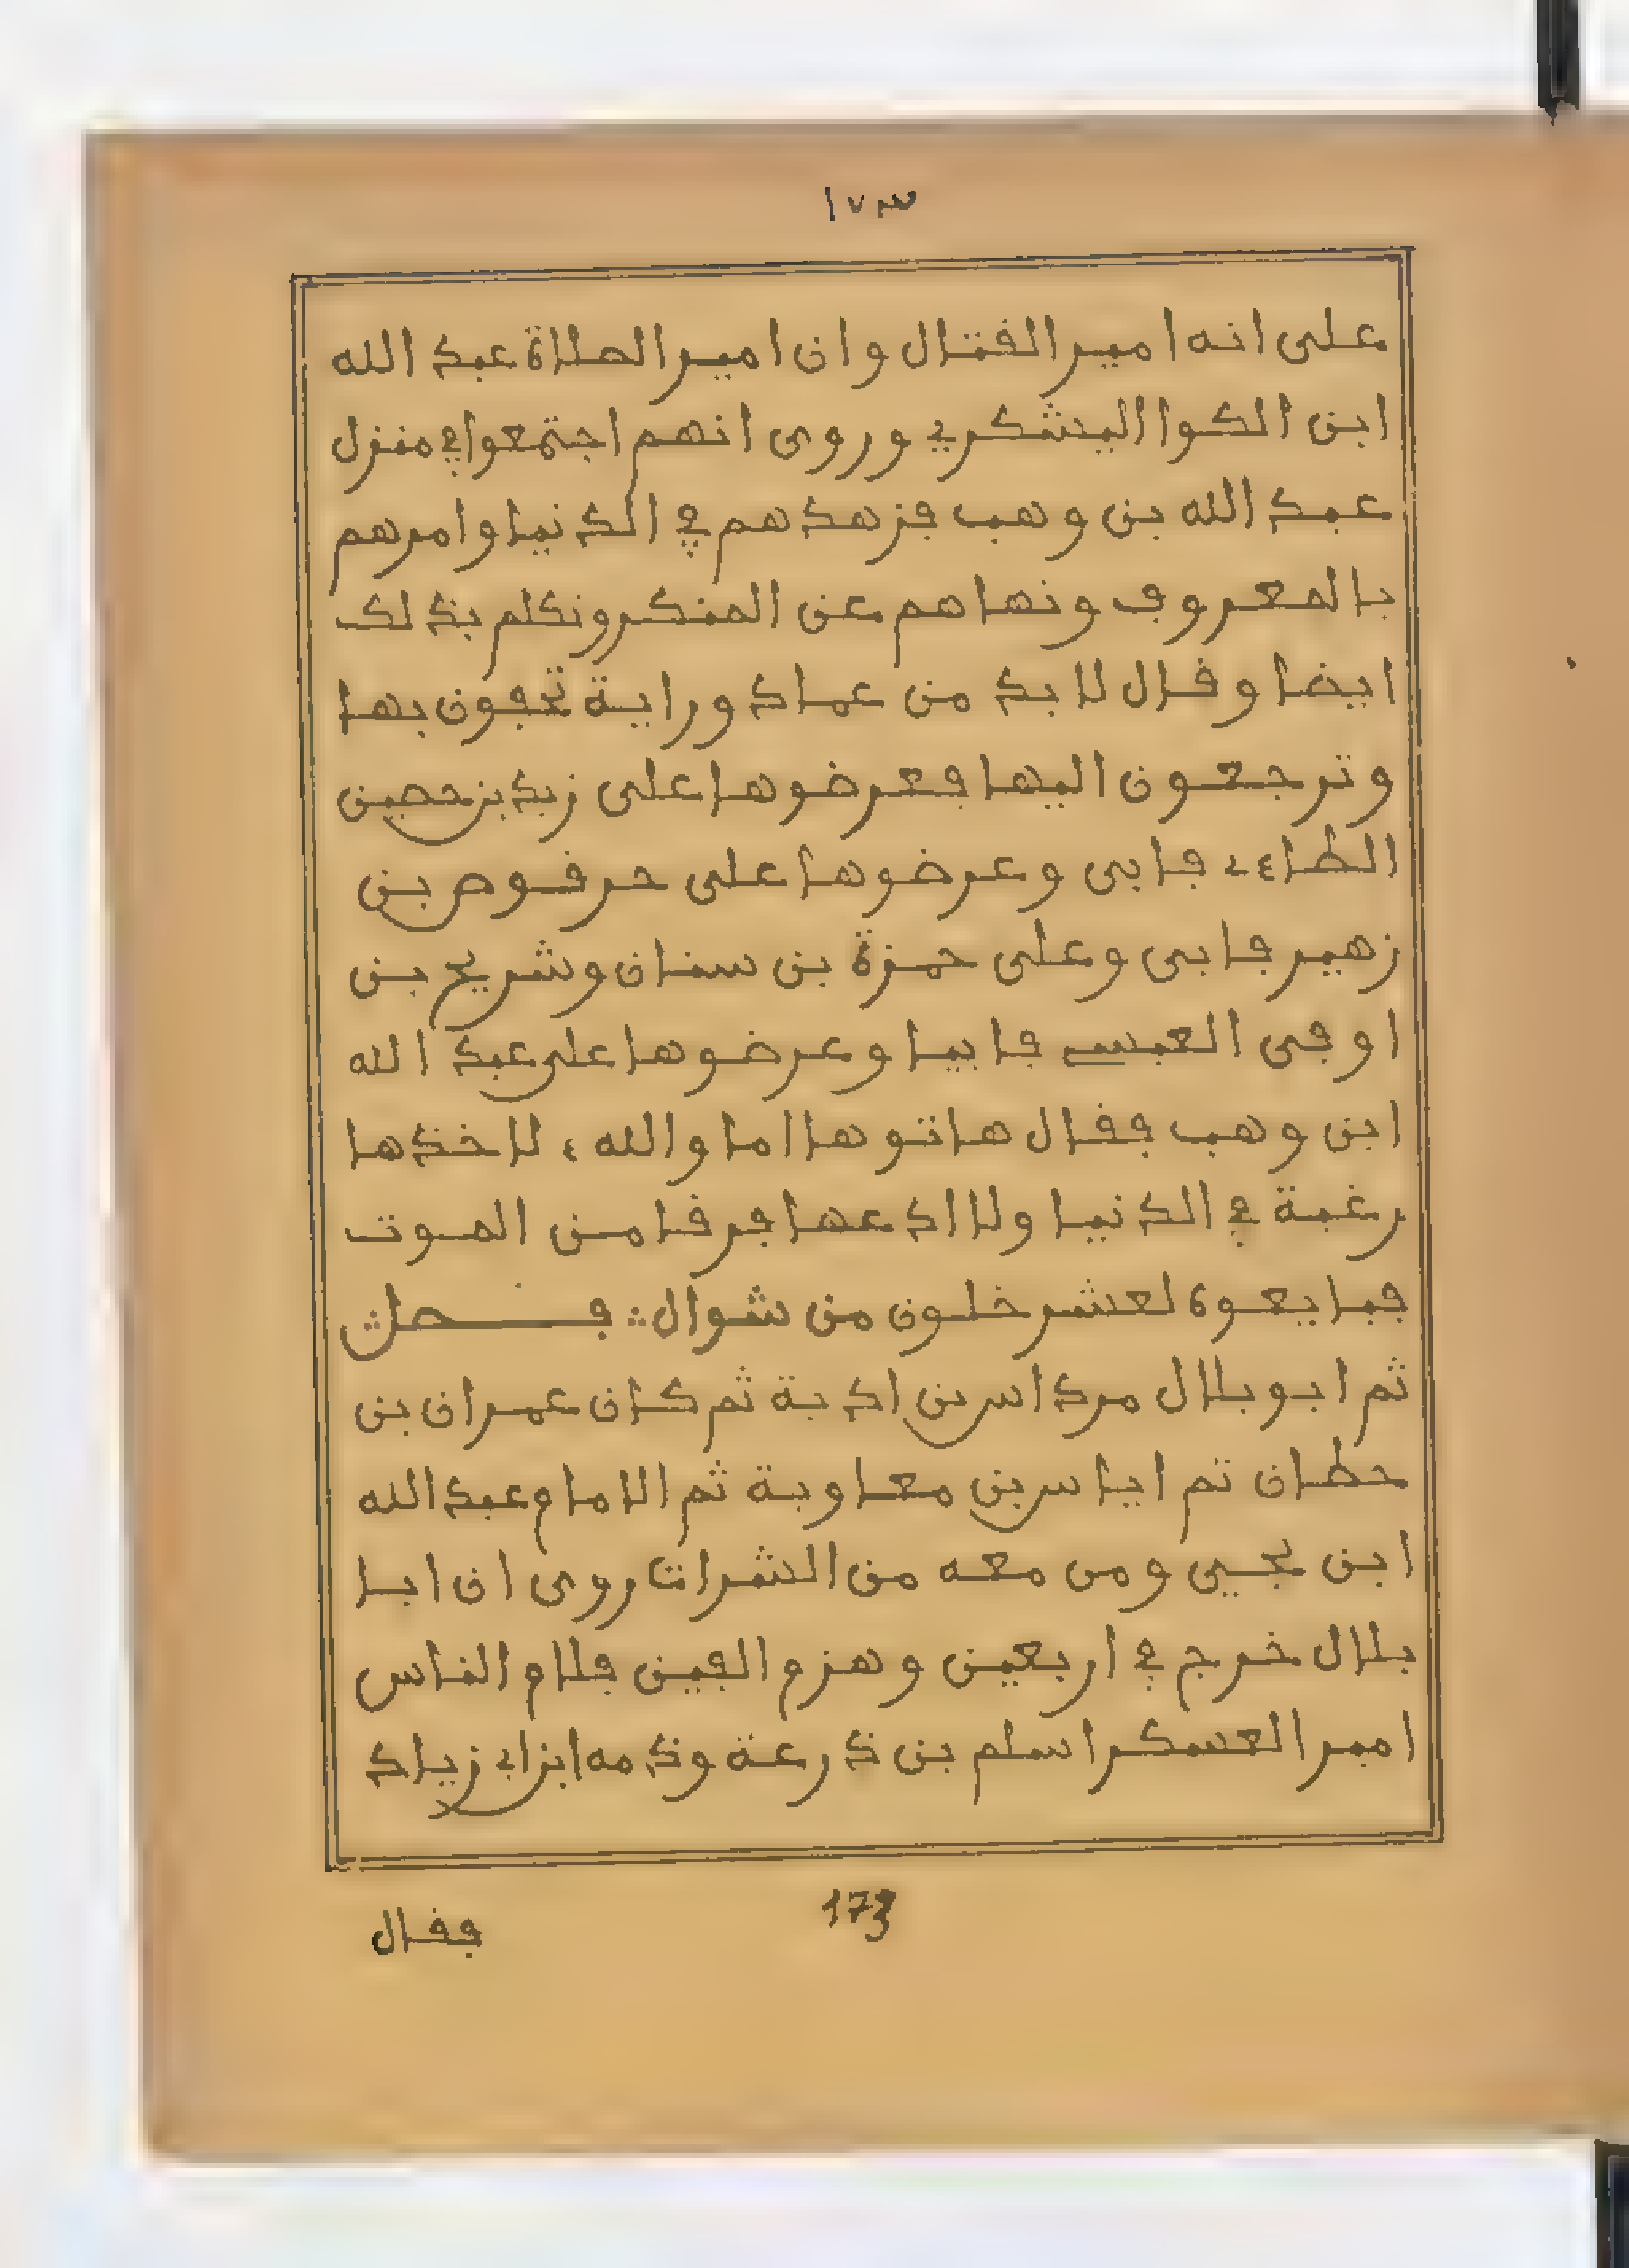 ١٧٣
على انه امير القتال وان امير الصلاة عبد الله
ابن الكوا اليشكري وروى انهم اجتمعوا في منزل
عبد الله بن وهب فزهدهم في الدنيا وامرهم
بالمعروف ونهاهم عن المنكر وتكلم بذلك
ايضا وقال لا بد من عماد وراية تحفون بها
وترجعون اليها فعرضوها على زيد بن حصين
الطاءي فابى وعرضوها على حرقوص بن
زهير فابى وعلى حمزة بن سنان وشريح بن
اوفى العبسي فابيا وعرضوها على عبد الله
ابن وهب فقال هاتوها اما والله ءلاخذها
رغبة في الدنيا ولا ادعها فرقا من الموت
فبايعوه لعشر خلون من شوال؛ فصل
ثم ابو بلال مرداس بن ادية ثم كان عمران بن
حطان ثم اياس بن معاوية ثم الامام عبد الله
ابن يحيى ومن معه من الشرات روى ان ابا
بلال خرج في اربعين وهزم الفين فلام الناس
امير العسكر اسلم بن ذرعة وذمه ابن ابي زياد
فقال
173